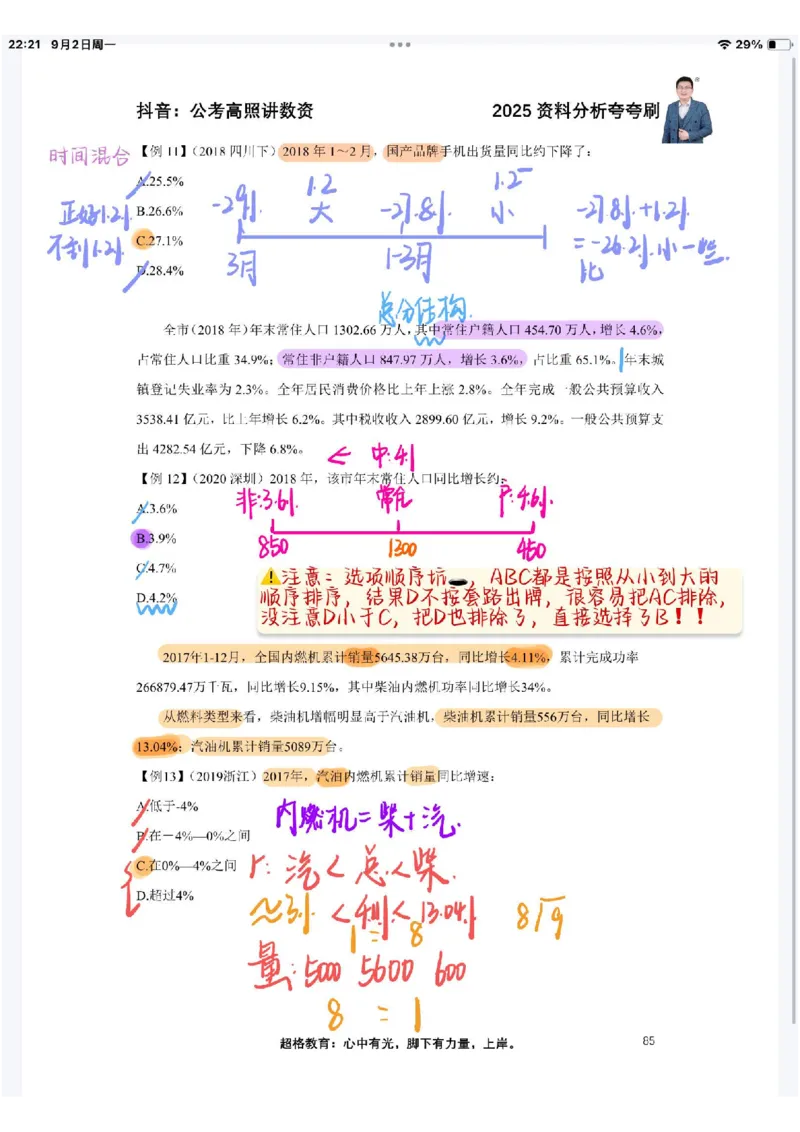 22:21 9月2日周一
29%
抖音：公考高照讲数资
2025 资料分析夸夸刷
时间混合
【例 11】（2018 四川下）2018 年 1～2 月，国产品牌手机出货量同比约下降了：
A.25.5%
B.26.6%
C.27.1%
D.28.4%
正好1.2%
不到1.2%
-29%
1.2
大
-27.8%
1.2-
小
3月
1-3月
-27.8%+1.2%
=-26.2%小一些.
比
总分结构.
全市（2018 年）年末常住人口 1302.66 万人，其中常住户籍人口 454.70 万人，增长 4.6%，
占常住人口比重 34.9%；常住非户籍人口 847.97 万人，增长 3.6%，占比重 65.1%。年末城
镇登记失业率为 2.3%。全年居民消费价格比上年上涨 2.8%。全年完成一般公共预算收入
3538.41 亿元，比上年增长 6.2%。其中税收收入 2899.60 亿元，增长 9.2%。一般公共预算支
出 4282.54 亿元，下降 6.8%。
← 中:4.1
【例 12】（2020 深圳）2018 年，该市年末常住人口同比增长约：
A.3.6%
B.3.9%
C.4.7%
D.4.2%
非:3.6%
常住
户:4.6%
850
1300
450
注意：选项顺序坑，ABC都是按照从小到大的
顺序排序，结果D不按套路出牌，很容易把AC排除，
没注意D小于C，把D也排除了，直接选择了B！！
2017年1-12月，全国内燃机累计销量5645.38万台，同比增长4.11%，累计完成功率
266879.47万千瓦，同比增长9.15%，其中柴油内燃机功率同比增长34%。
从燃料类型来看，柴油机增幅明显高于汽油机，柴油机累计销量556万台，同比增长
13.04%；汽油机累计销量5089万台。
【例13】（2019浙江）2017年，汽油内燃机累计销量同比增速：
A.低于-4%
B.在－4%—0%之间
C.在0%—4%之间
D.超过4%
内燃机=柴+汽.
r: 汽<总<柴.
≈3% <4.11<13.04%
1 = 8
8/9
量: 5000 5600 600
8 = 1
超格教育：心中有光，脚下有力量，上岸。
85